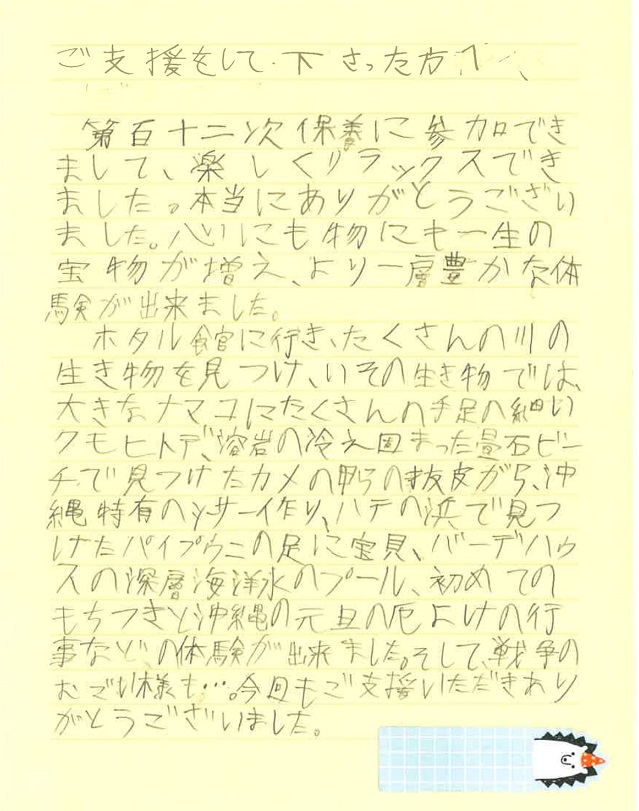 ご支援をして下さった方へ
第百十二次保養に参加でき
まして、楽しくリラックスでき
ました。本当にありがとうござい
ました。心にも物にも一生の
宝物が増え、より一層豊かな体
験が出来ました。
ホタル館に行き、たくさんの川の
生き物を見つけ、いその生き物では、
大きなナマコにたくさんの手足の細い
クモヒトデ、溶岩の冷え固まった畳石ビー
チで見つけたカメの甲らの抜皮がら、沖
縄特有のシーサー作り、ハテの浜で見つ
けたパイプウニの足に宝貝、バーデハウ
スの深層海洋水のプール、初めての
もちつきと沖縄の元旦の厄よけの行
事など、の体験が出来ました。そして、戦争の
お話し様も…。今回もご支援いただきあり
がとうございました。